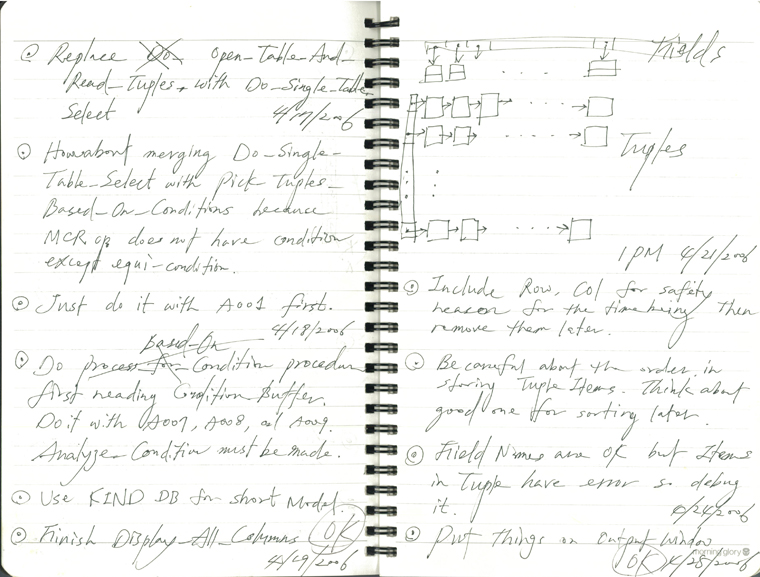 Replace Do- Open-Table-And-
Read-Tuples with Do-Single-Table
Select
4/17/2006
How about merging Do-Single-
Table-Select with Pick-Tuples-
Based-On-Conditions because
MCR op does not have condition
except equi-condition.
Just do it with A001 first.
4/18/2006
Based-On
Do process-for-Condition procedure
first reading Condition Buffer.
Do it with A007, A008, and A009.
Analyze-Condition must be made.
Use KIND DB for short Model.
Finish Display-All-Columns OK
4/19/2006
Fields
Tuples
1PM 4/21/2006
Include Row, Col for safety
reason for the time being then
remove them later.
Be careful about the order in
storing Tuple Items. Think about
good one for sorting later.
Field Names are OK but Items
in Tuple have error so debug
it.
4/24/2006
Put things on output window
morning glory
OK 4/25/2006